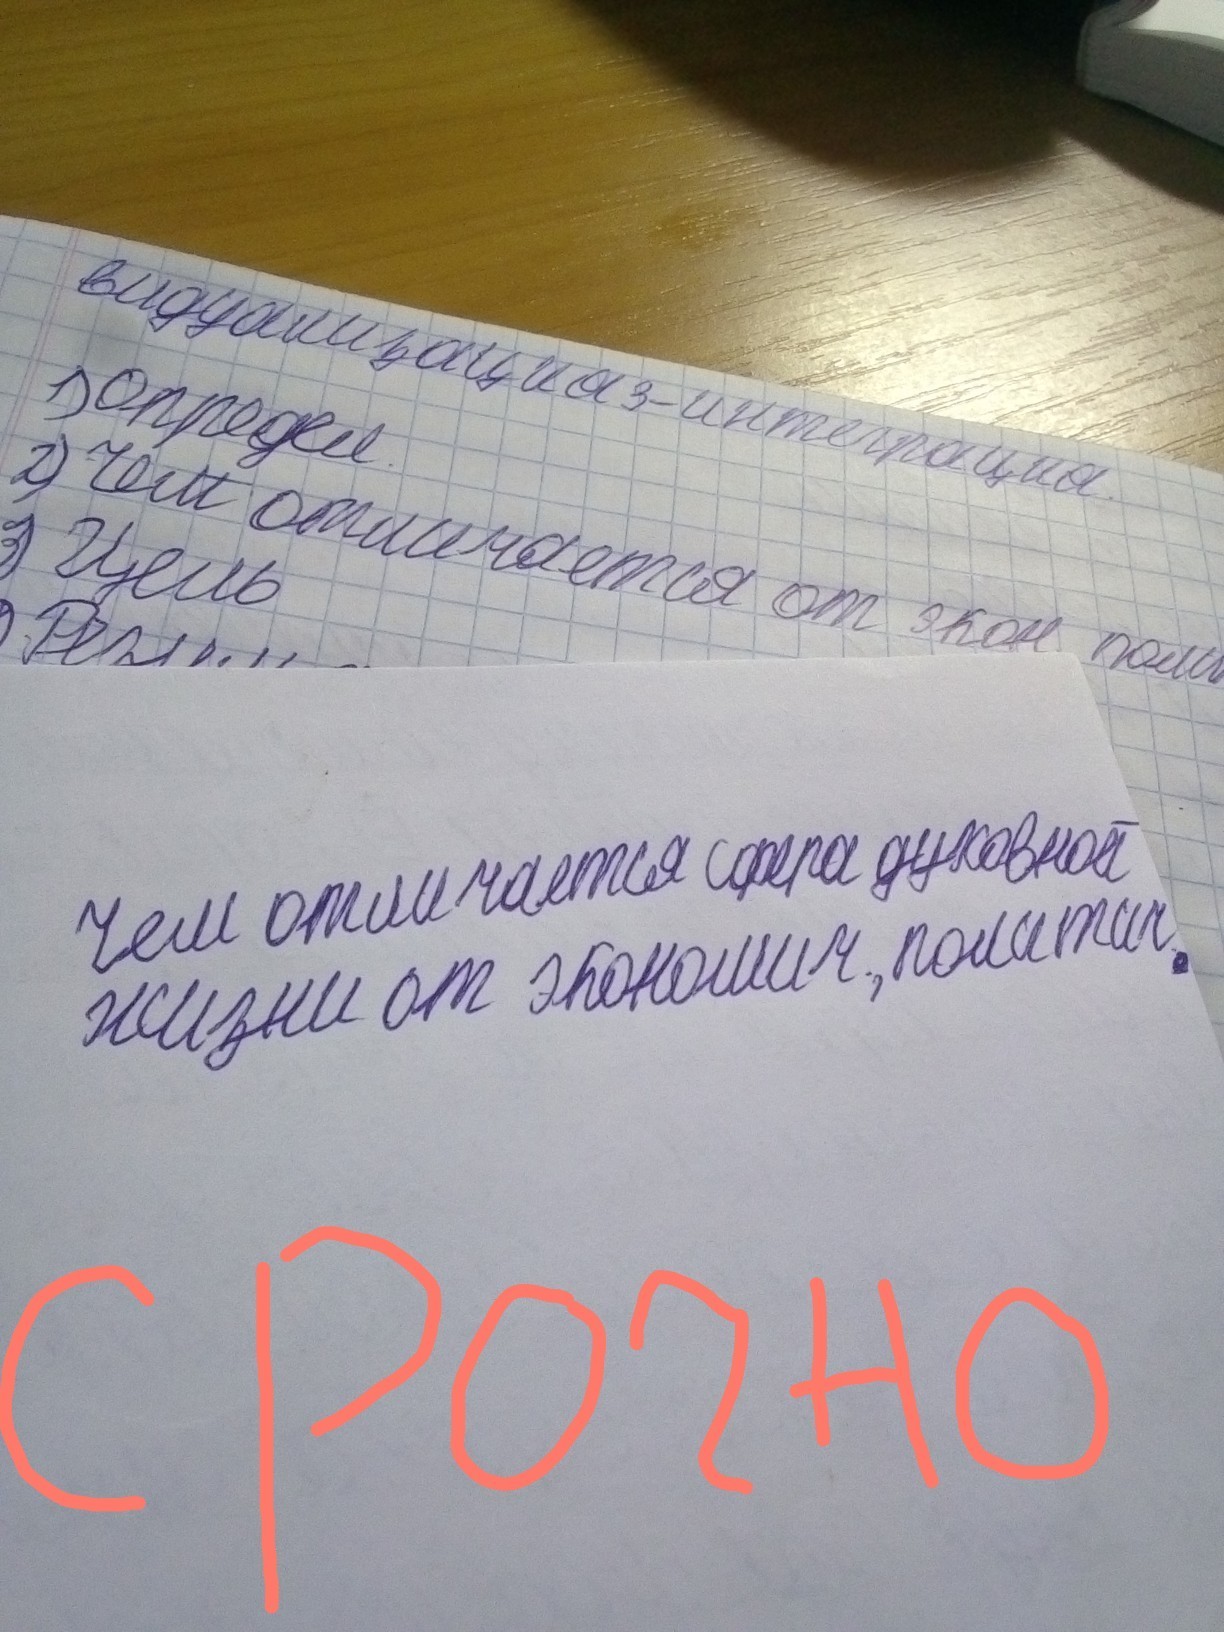 видуализация з-интеграция.
1) Определ.
2) Чем отличается от экон полит
3) Цель
Чем отличается сфера духовной
жизни от экономич., политич.
СРОЧНО